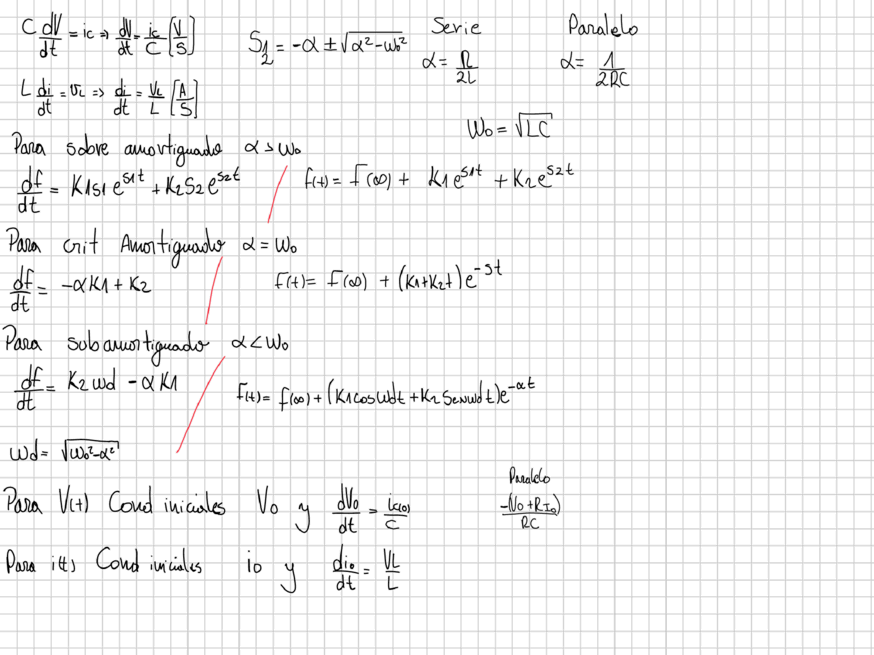 C dV/dt = ic ⇒ dV/dt = ic/C [V/S]
S1,2 = -α ± √(α² - wo²)
Serie
α = R/2L
Paralelo
α = 1/2RC
L di/dt = VL ⇒ di/dt = VL/L [A/S]
Wo = √LC
Para sobre amortiguado α > Wo
df/dt = K1s1 e^s1t + K2S2 e^s2t
f(t) = f(∞) + K1 e^s1t + K2 e^s2t
Para crit Amortiguado α = Wo
df/dt = -αK1 + K2
f(t) = F(∞) + (K1+K2t) e^-st
Para subamortiguado α < Wo
df/dt = K2 wd - αK1
f(t) = f(∞) + (K1 cos wdt + K2 Sen wdt) e^-αt
Wd = √(Wo² - α²)
Para V(t) Cond iniciales Vo y dVo/dt = ic(o)/C
Paralelo
-(Vo + RIo)/RC
Para i(t) Cond iniciales io y dio/dt = VL/L